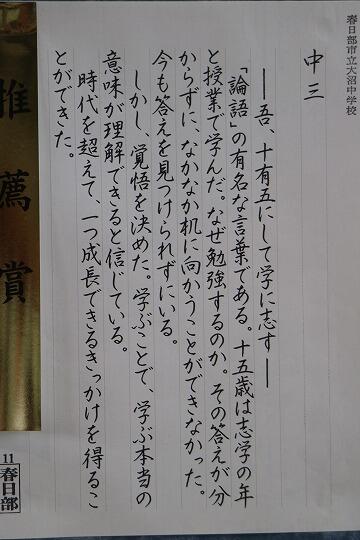 春日部市立大沼中学校
中三
―吾、十有五にして学に志す―
「論語」の有名な言葉である。十五歳は志学の年
と授業で学んだ。なぜ勉強するのか。その答えが分
からずに、なかなか机に向かうことができなかった。
今も答えを見つけられずにいる。
しかし、覚悟を決めた。学ぶことで、学ぶ本当の
意味が理解できると信じている。
時代を超えて、一つ成長できるきっかけを得るこ
とができた。
推薦賞
11
春日部